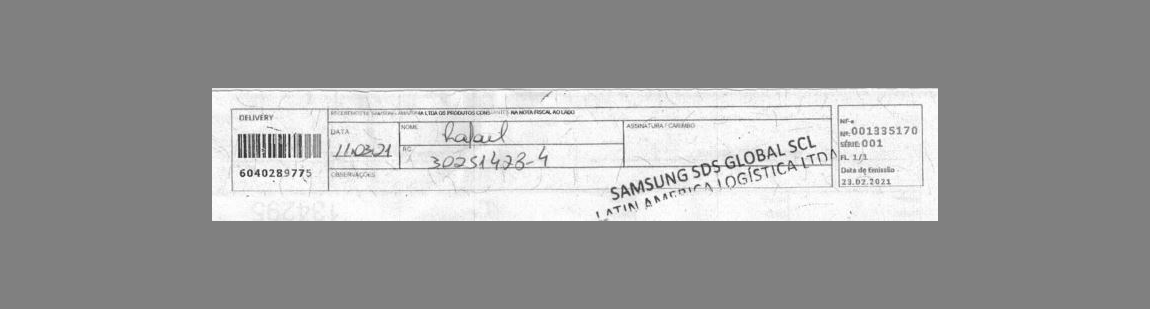 DELIVERY
6040289775
RECEBEMOS DE SAMSUNG AMAZÔNIA LTDA OS PRODUTOS CONSTANTES NA NOTA FISCAL AO LADO
DATA
11.03.21
NOME
Rafael
RG
30251473-4
OBSERVAÇÕES
ASSINATURA / CARIMBO
SAMSUNG SDS GLOBAL SCL
LATIN AMERICA LOGÍSTICA LTDA
NF-e
Nº: 001335170
SÉRIE: 001
FL. 1/1
Data de Emissão
23.02.2021